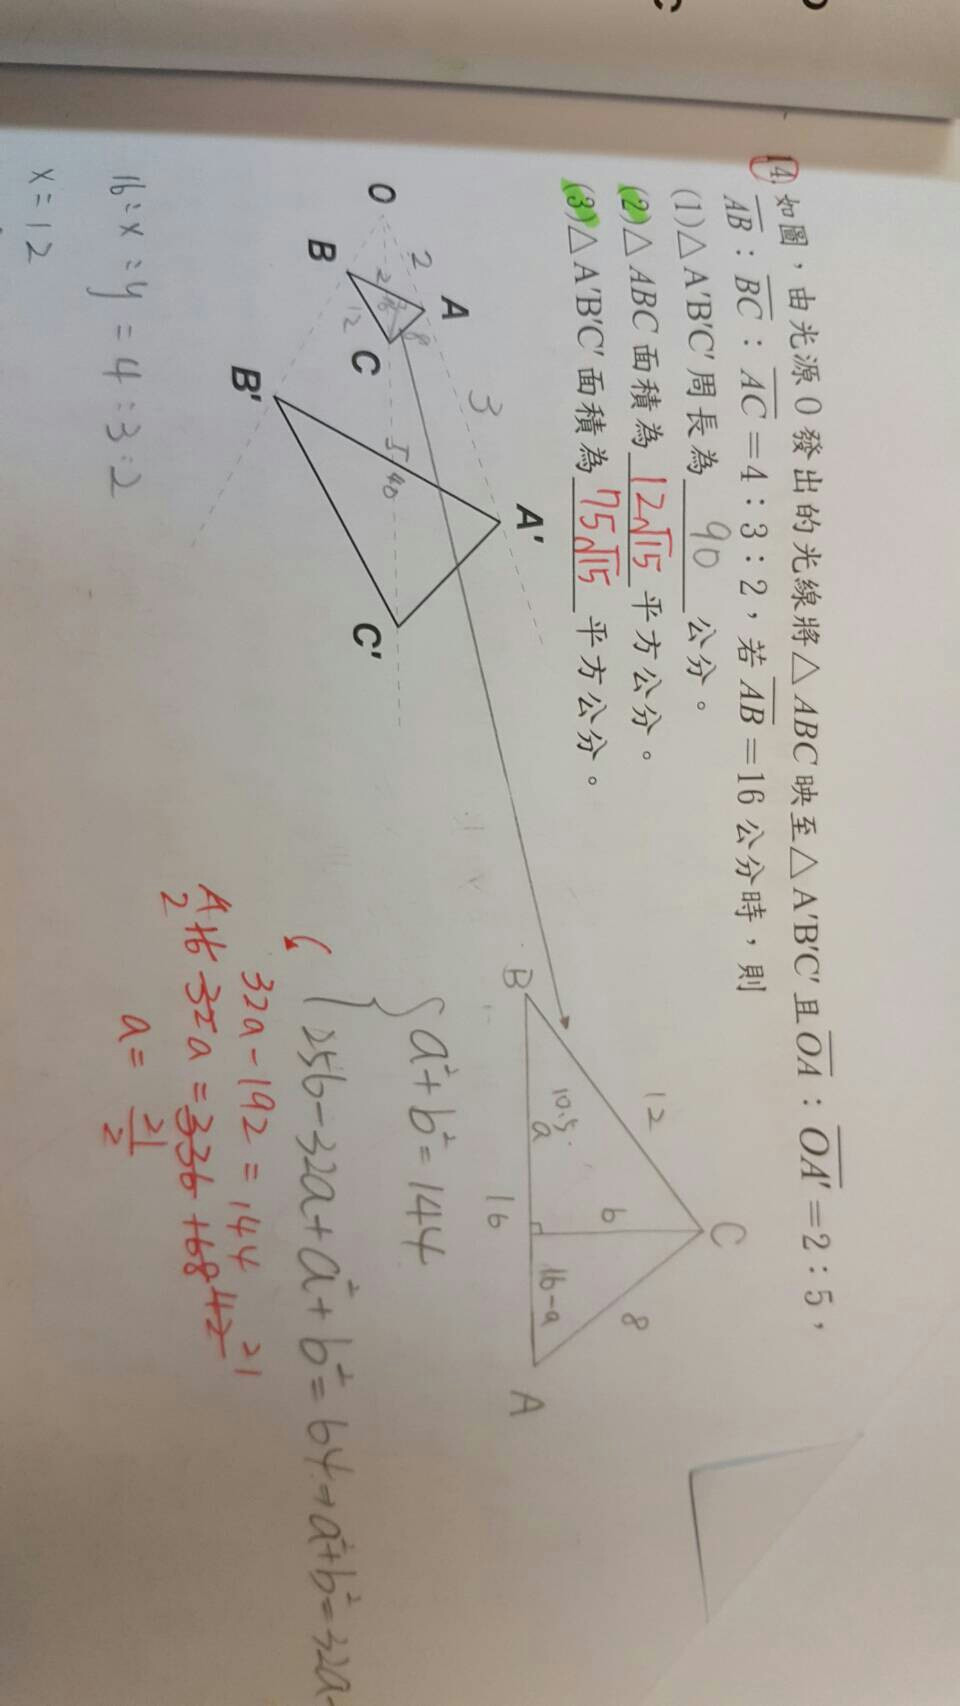 14. 如圖，由光源O發出的光線將△ABC映至△A'B'C'且OA：OA'=2：5，
AB：BC：AC=4：3：2，若AB=16公分時，則
(1)△A'B'C'周長為 90 公分。
(2)△ABC面積為 12√15 平方公分。
(3)△A'B'C'面積為 75√15 平方公分。
O
A
B
C
A'
B'
C'
2
3
2
5
40
12
8
16：x：y=4：3：2
x=12
B
C
A
12
8
10.5
a
b
16-a
16
a²+b²=144
256-32a+a²+b²=64→a²+b²=32a-
32a-192=144
a=21/2